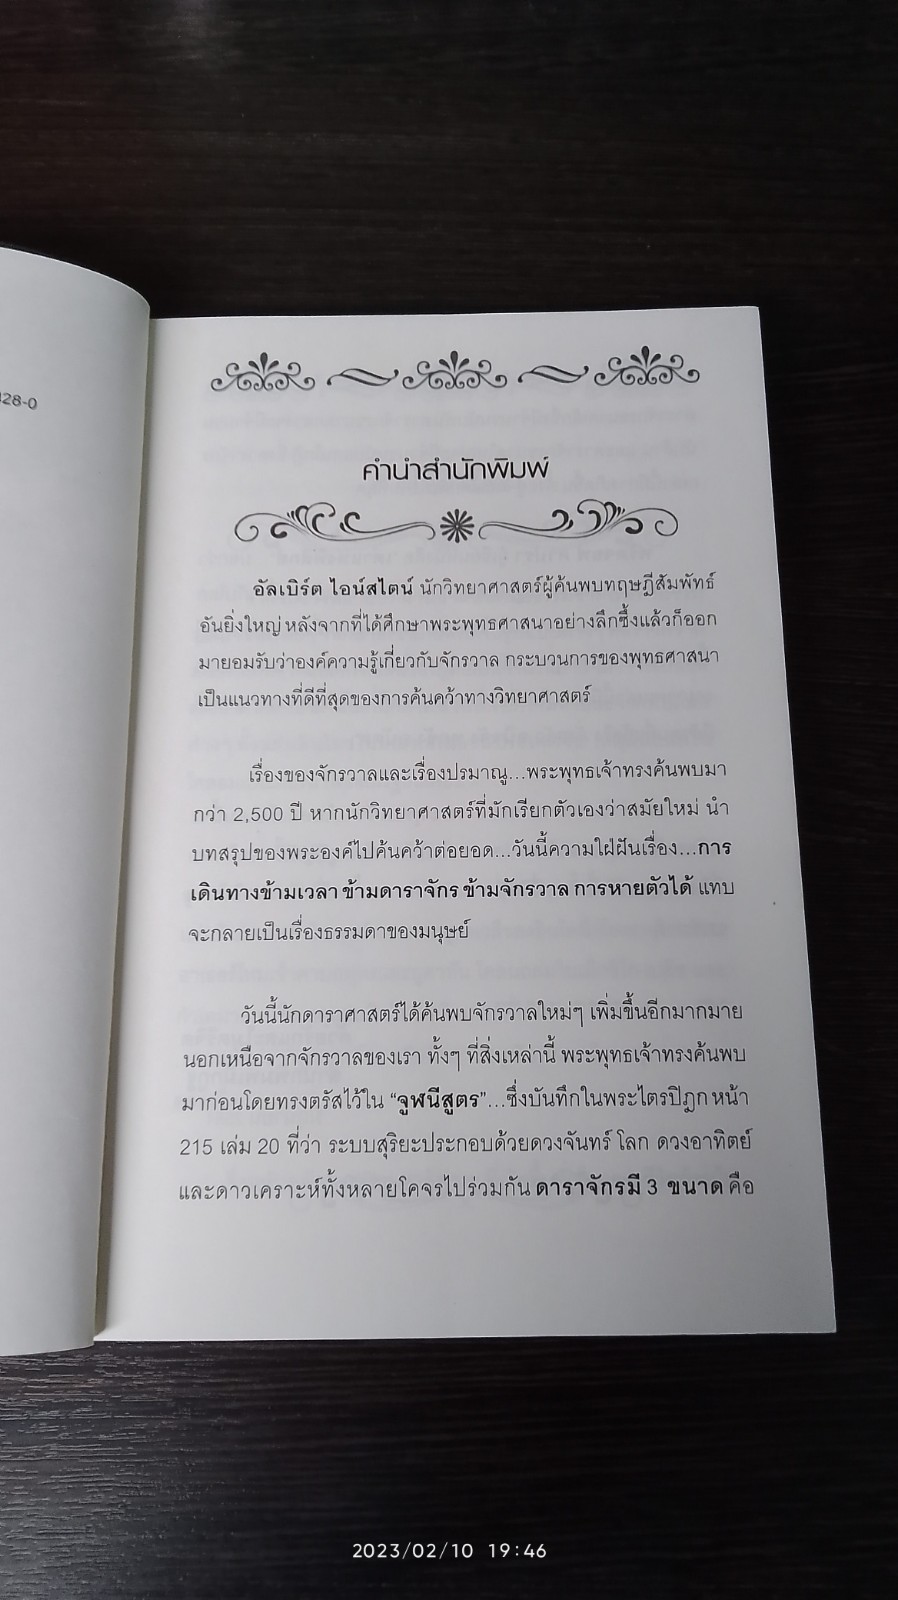 28-0
คำนำสำนักพิมพ์
อัลเบิร์ต ไอน์สไตน์ นักวิทยาศาสตร์ผู้ค้นพบทฤษฎีสัมพัทธ์
อันยิ่งใหญ่ หลังจากที่ได้ศึกษาพระพุทธศาสนาอย่างลึกซึ้งแล้วก็ออก
มายอมรับว่าองค์ความรู้เกี่ยวกับจักรวาล กระบวนการของพุทธศาสนา
เป็นแนวทางที่ดีที่สุดของการค้นคว้าทางวิทยาศาสตร์
เรื่องของจักรวาลและเรื่องปรมาณู...พระพุทธเจ้าทรงค้นพบมา
กว่า 2,500 ปี หากนักวิทยาศาสตร์ที่มักเรียกตัวเองว่าสมัยใหม่ นำ
บทสรุปของพระองค์ไปค้นคว้าต่อยอด...วันนี้ความใฝ่ฝันเรื่อง...การ
เดินทางข้ามเวลา ข้ามดาราจักร ข้ามจักรวาล การหายตัวได้ แทบ
จะกลายเป็นเรื่องธรรมดาของมนุษย์
วันนี้นักดาราศาสตร์ได้ค้นพบจักรวาลใหม่ๆ เพิ่มขึ้นอีกมากมาย
นอกเหนือจากจักรวาลของเรา ทั้งๆ ที่สิ่งเหล่านี้ พระพุทธเจ้าทรงค้นพบ
มาก่อนโดยทรงตรัสไว้ใน “จูฬนีสูตร”...ซึ่งบันทึกในพระไตรปิฎก หน้า
215 เล่ม 20 ที่ว่า ระบบสุริยะประกอบด้วยดวงจันทร์ โลก ดวงอาทิตย์
และดาวเคราะห์ทั้งหลายโคจรไปร่วมกัน ดาราจักรมี 3 ขนาด คือ
2023/02/10 19:46